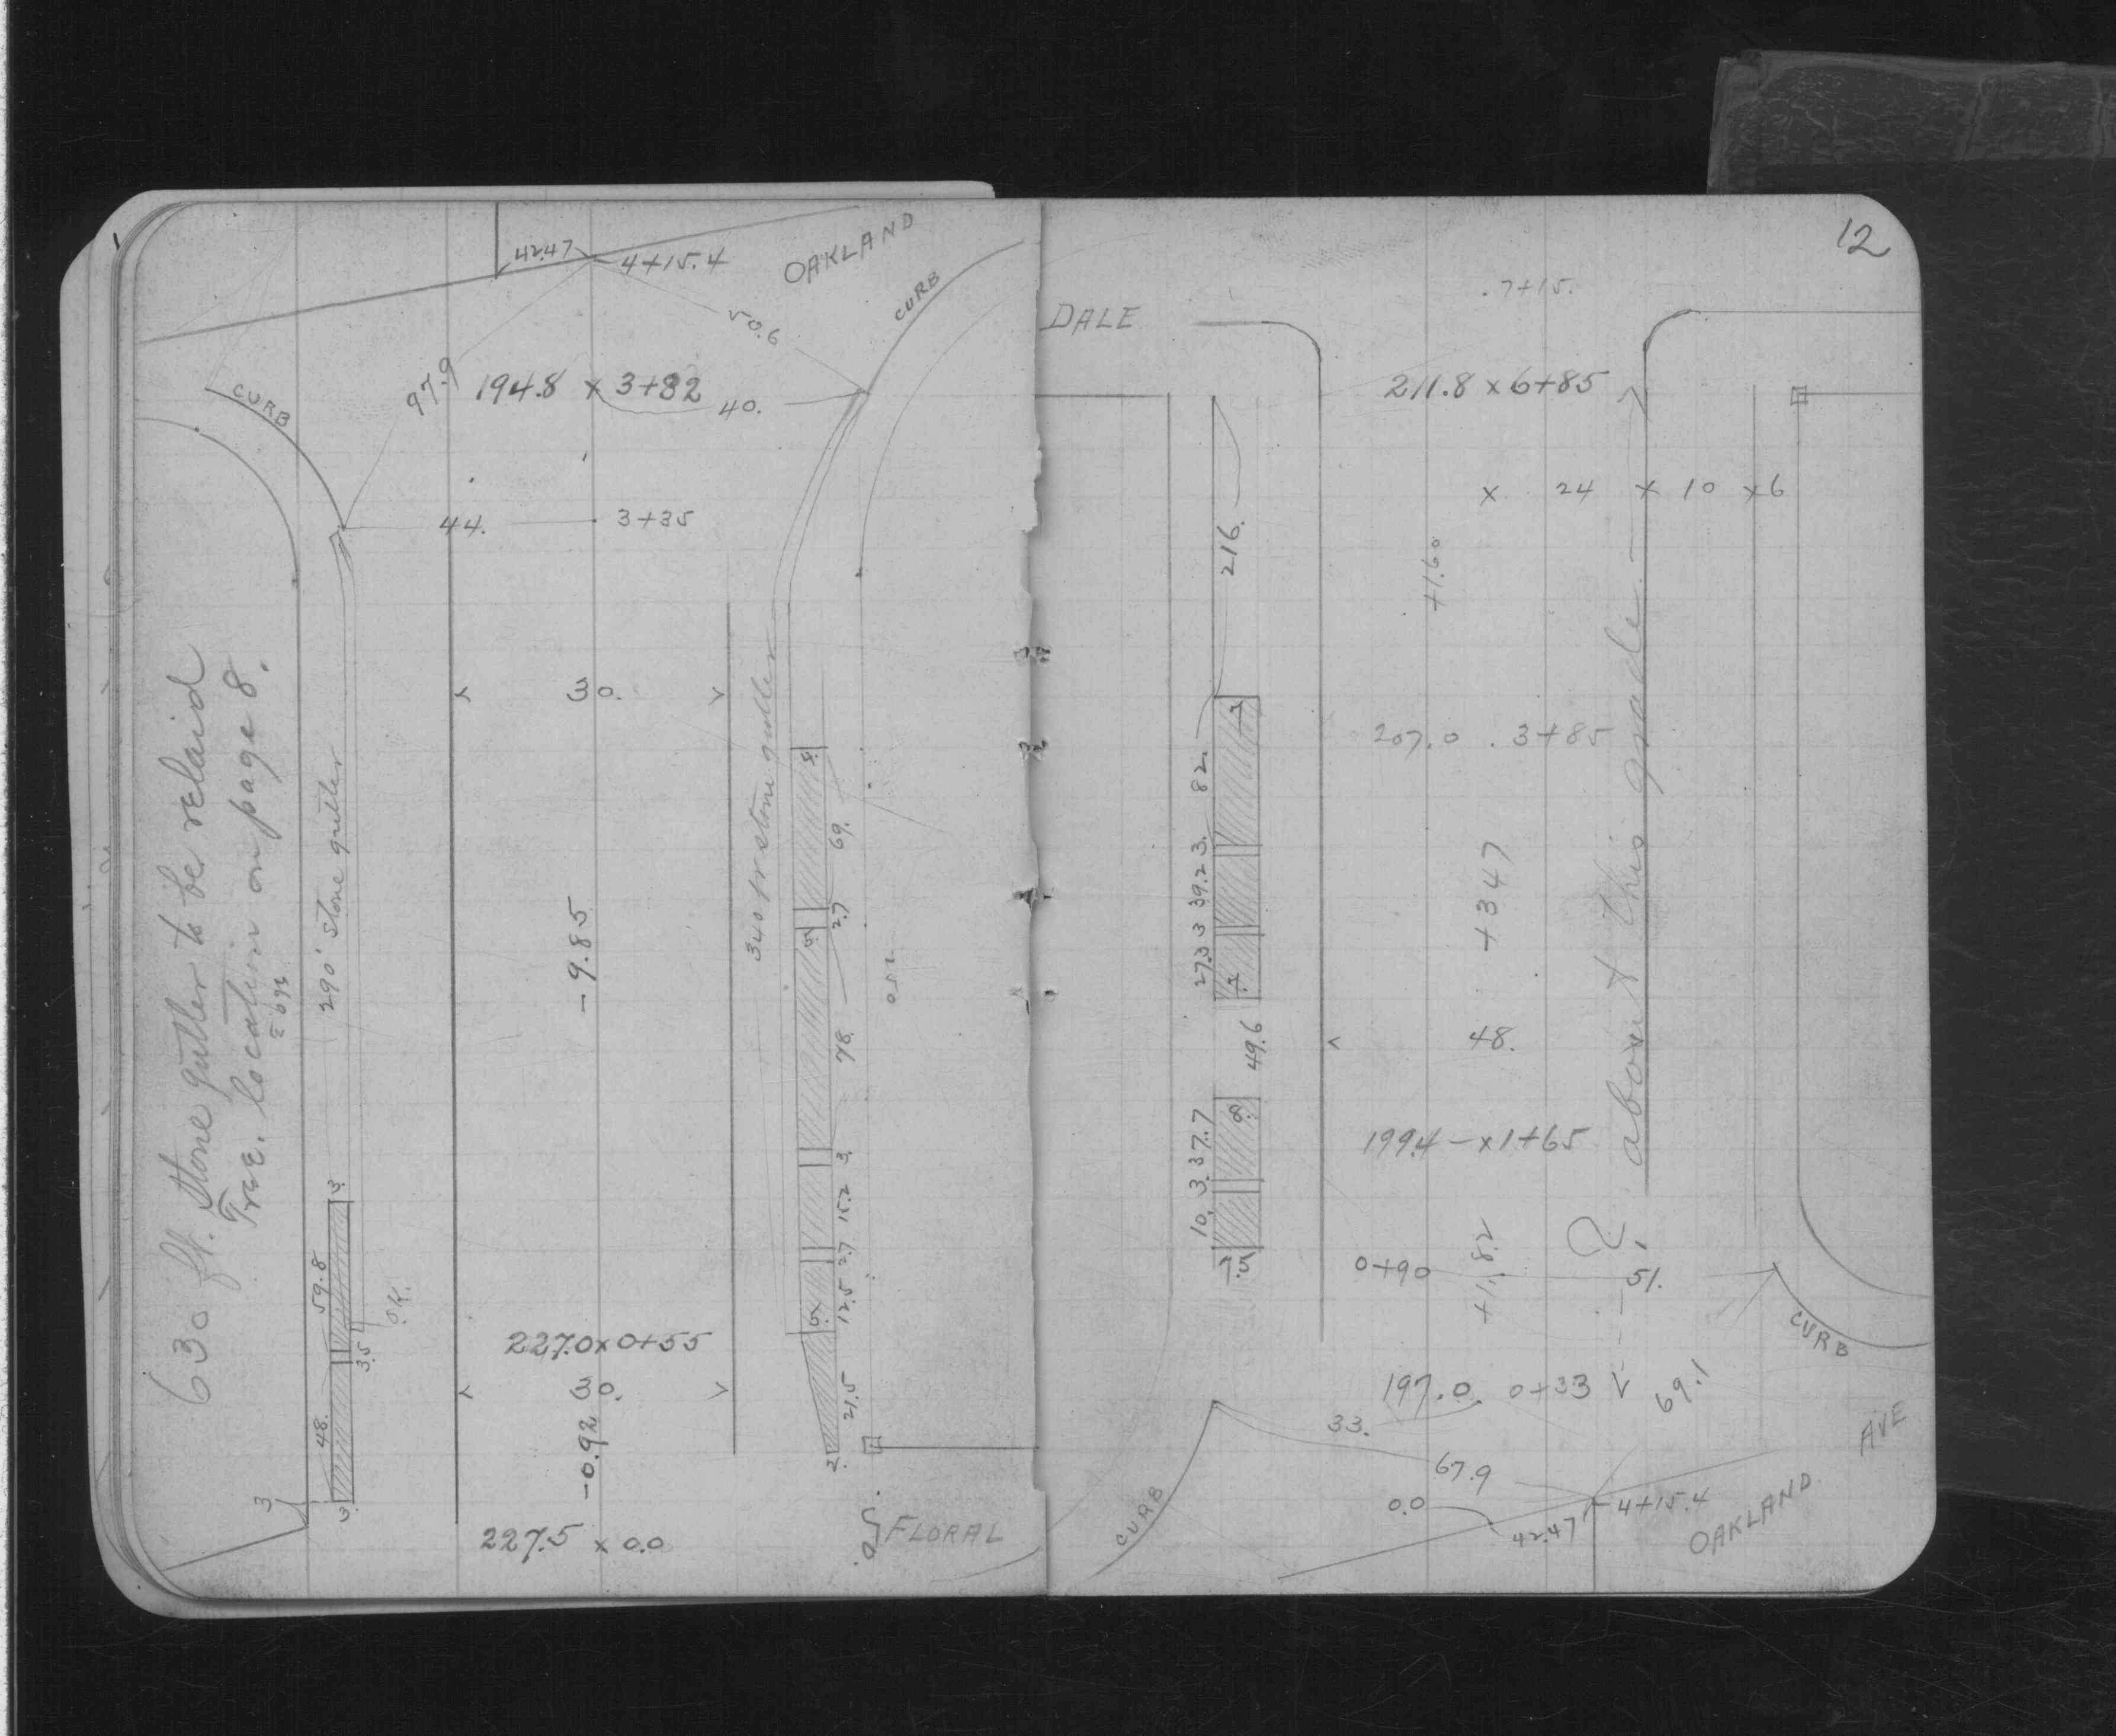 42.47
4+15.4
OAKLAND
CURB
50.6
97.9
194.8 x 3+82
40.
CURB
44.
3+35
630 ft. Stone gutter to be relaid
Tree. location on page 8.
290' stone gutter
30.
-9.85
340 ft stone gutter
8.
69.
2.7
5
78
3.
15.2
2.7
12.5
5x
21.5
2.
3.
59.8
3.5
48.
3.
3
O.K.
227.0 x 0+55
30.
-0.92
227.5 x 0.0
FLORAL
12
.7+15.
DALE
211.8 x 6+85
x 24 x 10 x 6
216.
+1.60
82.
207.0 . 3+85
39.2 3.
27.3 3
+3.47
about this grade
49.6
48.
37.7
3.
10.
8.
199.4 - x 1+65
0+90
+1.82
51.
?
CURB
197.0 0+33
69.1
33.
67.9
AVE
0.0
42.47
4+15.4
OAKLAND
CURB